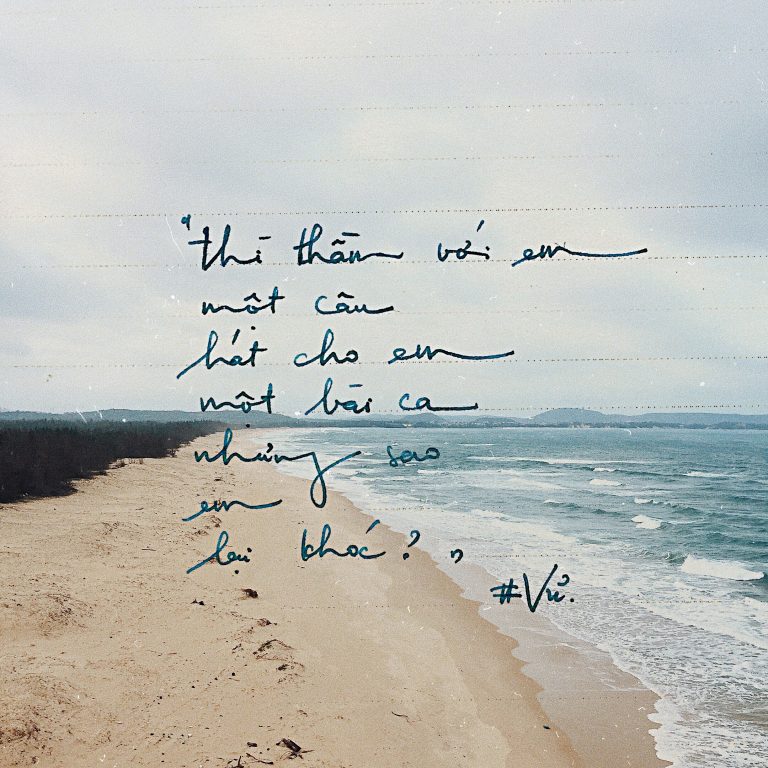 "thì thầm với em
một câu
hát cho em
một bài ca
nhưng sao
em
lại khóc?"
#Vũ.